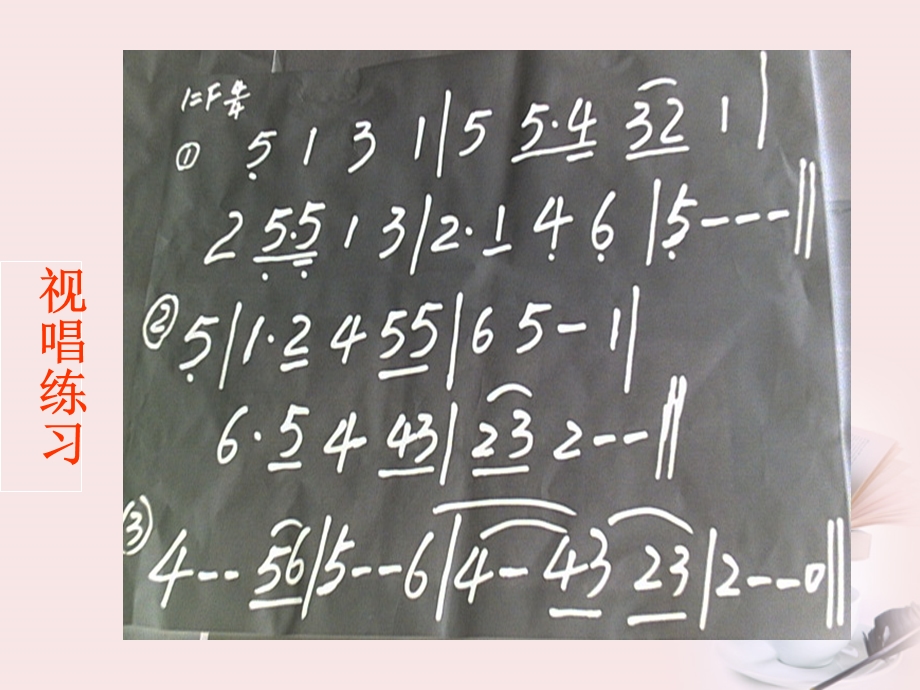 视唱练习
1=F 4/4
① 5̣ 1 3 1 | 5 5·4 32 1 |
2 5̣·5̣ 1 3 | 2·1 4̣ 6̣ | 5̣ - - - ||
② 5̣ | 1·2 4 55 | 6 5 - 1 |
6·5 4 43 | 23 2 - - ||
③ 4 - - 56 | 5 - - 6 | 4 - 43 23 | 2 - - 0 ||